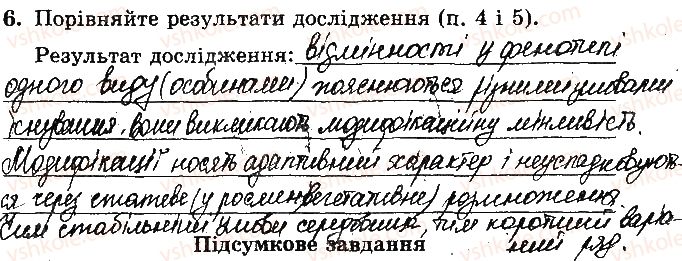 6. Порівняйте результати дослідження (п. 4 і 5).
Результат дослідження: відмінності у фенотипі
одного виду (особинами) пояснюються різними умовами
існування, вони викликають модифікаційну мінливість.
Модифікації носять адаптивний характер і неуспадковують-
ся через статеве (у рослин вегетативне) розмноження.
Чим стабільніші умови середовища, тим коротший варіа-
Підсумкове завдання ний ряд.